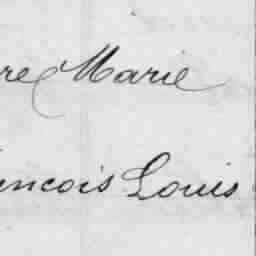 re Marie
ncois Louis